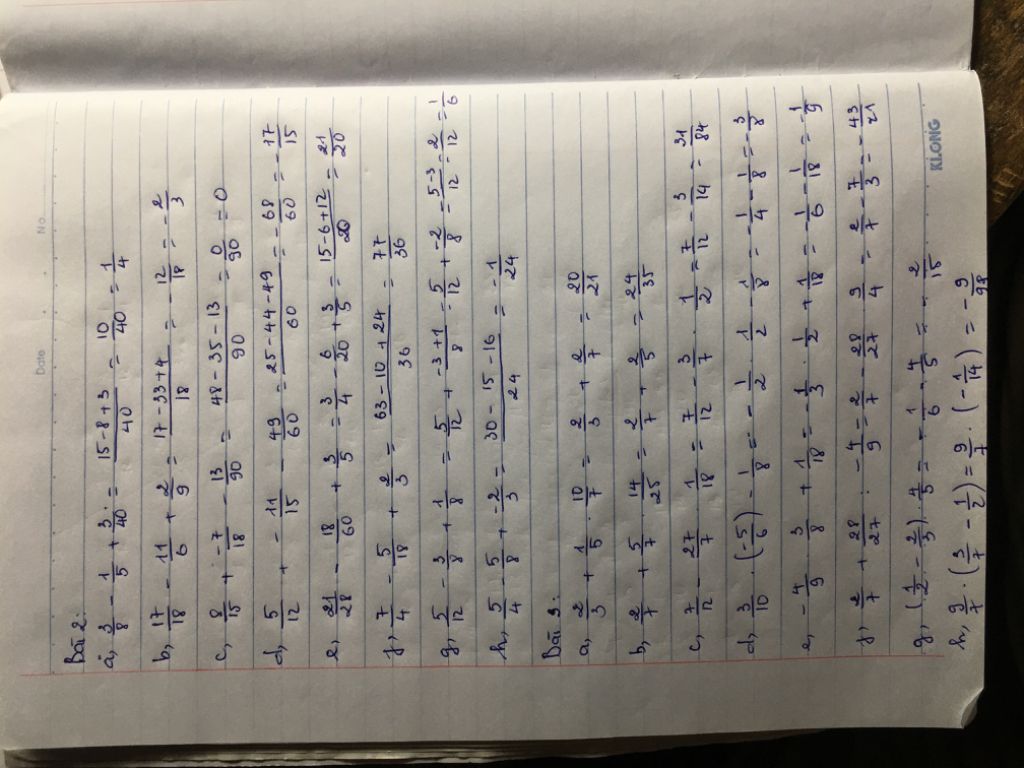 Date No
Bài 2:
a, 3/8 - 1/5 + 3/40 = (15-8+3)/40 = 10/40 = 1/4
b, 17/18 - 11/6 + 2/9 = (17-33+4)/18 = -12/18 = -2/3
c, 8/15 + -7/18 - 13/90 = (48-35-13)/90 = 0/90 = 0
d, 5/12 + -11/15 - 49/60 = (25-44-49)/60 = -68/60 = -17/15
e, 21/28 - 18/60 + 3/5 = 3/4 - 6/20 + 3/5 = (15-6+12)/20 = 21/20
f, 7/4 - 5/18 + 2/3 = (63-10+24)/36 = 77/36
g, 5/12 - 3/8 + 1/8 = 5/12 + (-3+1)/8 = 5/12 + -2/8 = (5-3)/12 = 2/12 = 1/6
h, 5/4 - 5/8 + -2/3 = (30-15-16)/24 = -1/24
Bài 3:
a, 2/3 + 1/5 . 10/7 = 2/3 + 2/7 = 20/21
b, 2/7 + 5/7 . 14/25 = 2/7 + 2/5 = 24/35
c, 7/12 - 27/7 . 1/18 = 7/12 - 3/7 . 1/2 = 7/12 - 3/14 = 31/84
d, 3/10 . (-5/6) - 1/8 = -1/2 . 1/2 - 1/8 = -1/4 - 1/8 = -3/8
e, -4/9 . 3/8 + 1/18 = -1/3 . 1/2 + 1/18 = -1/6 - 1/18 = -1/9
f, 2/7 + 28/27 : -4/9 = 2/7 - 28/27 . 9/4 = 2/7 - 7/3 = -43/21
g, (1/2 - 2/3) . 4/5 = -1/6 . 4/5 = -2/15
h, 9/7 . (3/7 - 1/2) = 9/7 . (-1/14) = -9/98
KLONG